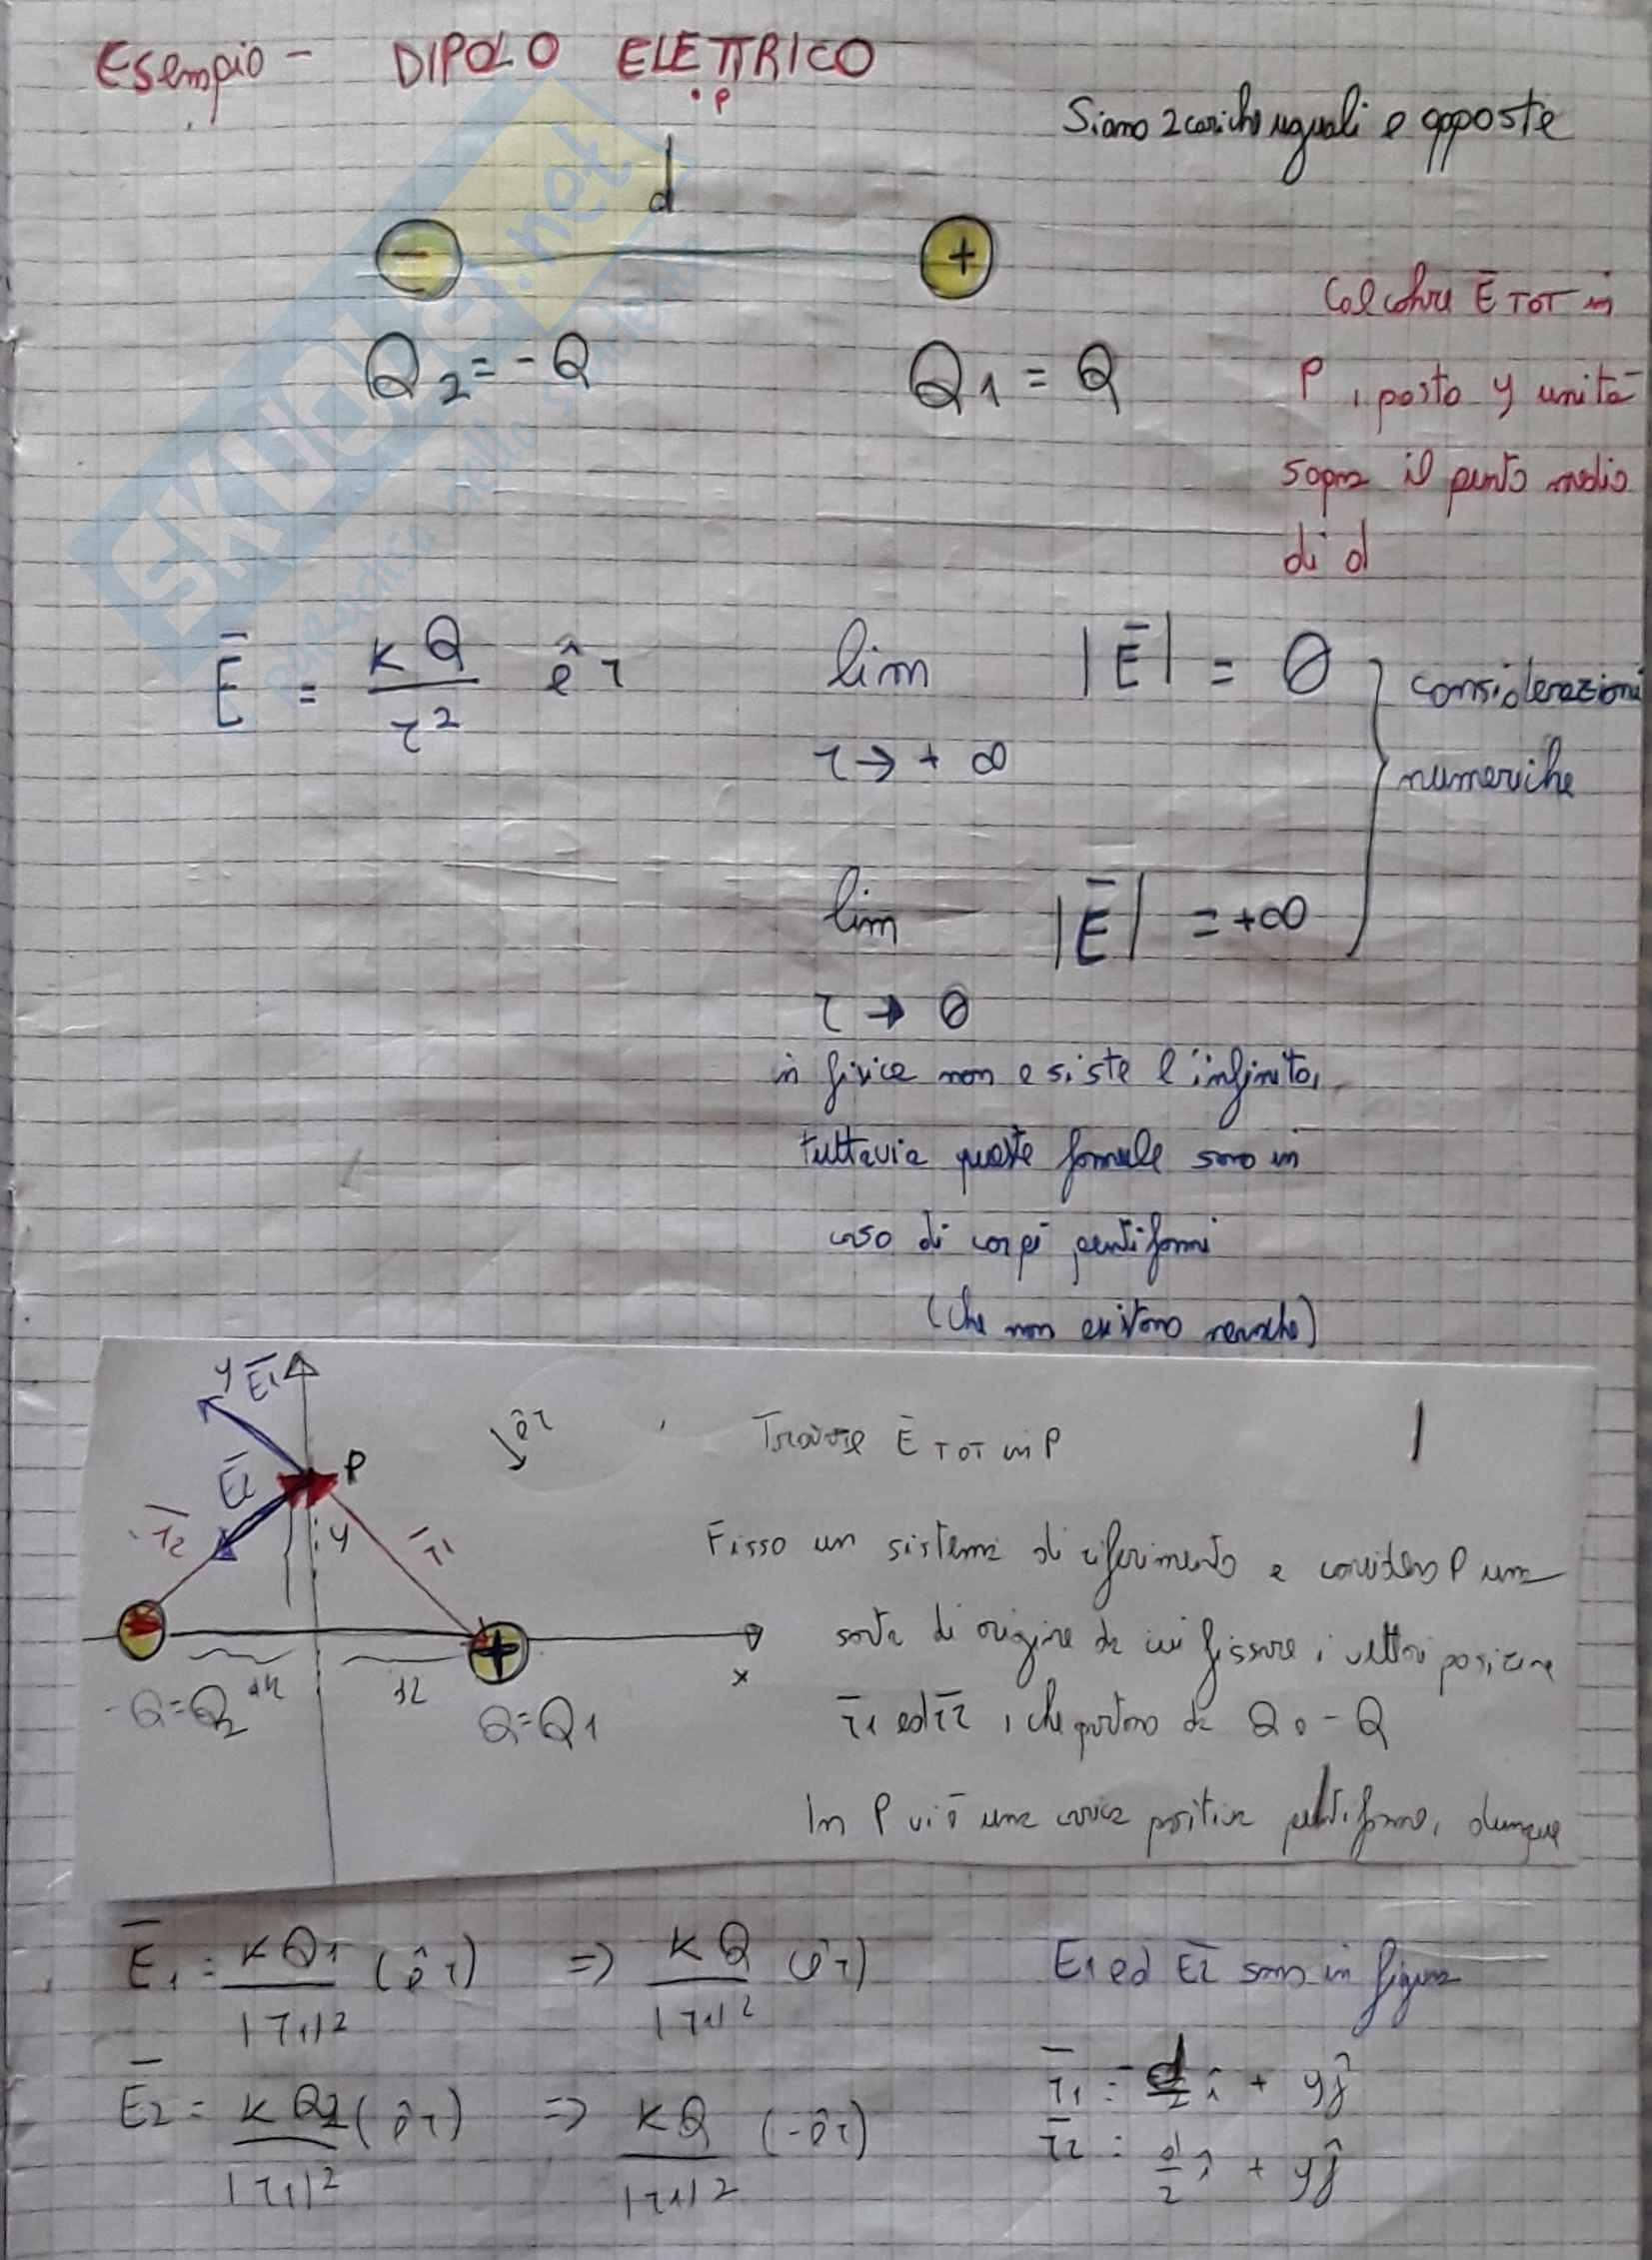 Esempio - DIPOLO ELETTRICO
• P
Siano 2 cariche uguali e opposte
d
- +
Q2 = -Q Q1 = Q
Calcolare Ē TOT in
P, posto y unità
sopra il punto medio
di d
SKUOLA.net
paradiso dello studente
Ē = kQ/r² êr
lim |Ē| = 0
r → + ∞
considerazioni
numeriche
lim |Ē| = +∞
r → 0
in fisica non esiste l'infinito,
tuttavia queste formule sono in
caso di corpi puntiformi
(che non esistono neanche)
y Ē1
êr
Trovare Ē TOT in P
1
P
Ē2
r̄2 y r̄1
Fisso un sistema di riferimento e considero P una
sorta di origine da cui fissare i vettori posizione
+
x
-Q = Q2 Q = Q1
r̄1 ed r̄2, che partono da Q e -Q
In P vi è una carica positiva puntiforme, dunque
Ē1 = kQ1/|r1|² (êr) => kQ/|r1|² (êr)
E1 ed Ē2 sono in figura
Ē2 = kQ2/|r1|² (êr) => kQ/|r1|² (-êr)
r̄1 = -d/2 î + yĵ
r̄2 = d/2 î + yĵ